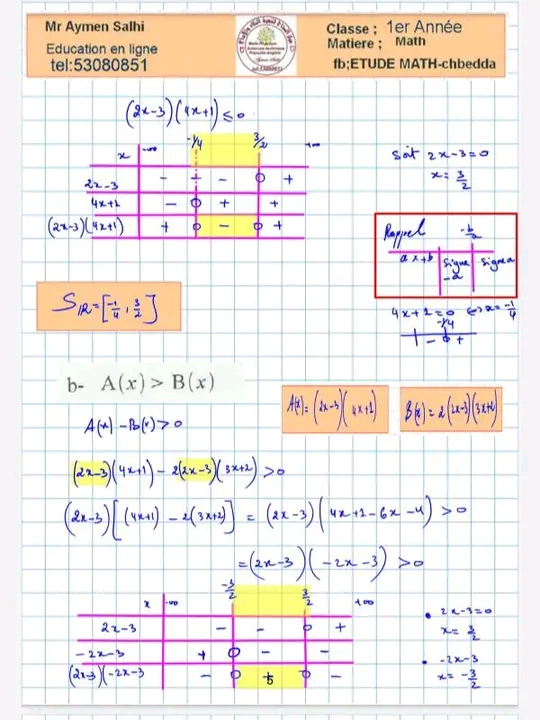 Mr Aymen Salhi
Education en ligne
tel:53080851
Classe ; 1er Année
Matiere ; Math
fb;ETUDE MATH-chbedda
(2x-3)(4x+1) ≤ 0
x -∞ -1/4 3/2 +∞
2x-3 - - - 0 +
4x+1 - 0 + +
(2x-3)(4x+1) + 0 - 0 +
Soit 2x-3=0
x = 3/2
Rappel -b/a
ax+b Signe -a Signe a
4x+1=0 ⇔ x = -1/4
-1/4
- 0 +
S_IR = [-1/4 , 3/2]
b- A(x) > B(x)
A(x) = (2x-3)(4x+1)
B(x) = 2(2x-3)(3x+2)
A(x) - B(x) > 0
(2x-3)(4x+1) - 2(2x-3)(3x+2) > 0
(2x-3)[(4x+1) - 2(3x+2)] = (2x-3)(4x+1-6x-4) > 0
= (2x-3)(-2x-3) > 0
x -∞ -3/2 3/2 +∞
2x-3 - - 0 +
-2x-3 + 0 - -
(2x-3)(-2x-3 - 0 + 0 -
• 2x-3=0
x = 3/2
• -2x-3
x = -3/2